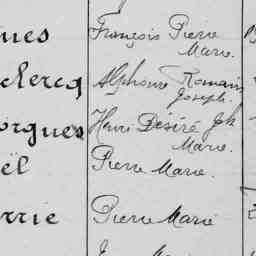 ques François Pierre
Marie.
clercq Alphonse Romain
Joseph.
orgues Henri Désiré Jph
Marie.
ël Pierre Marie.
rrie Pierre Marie